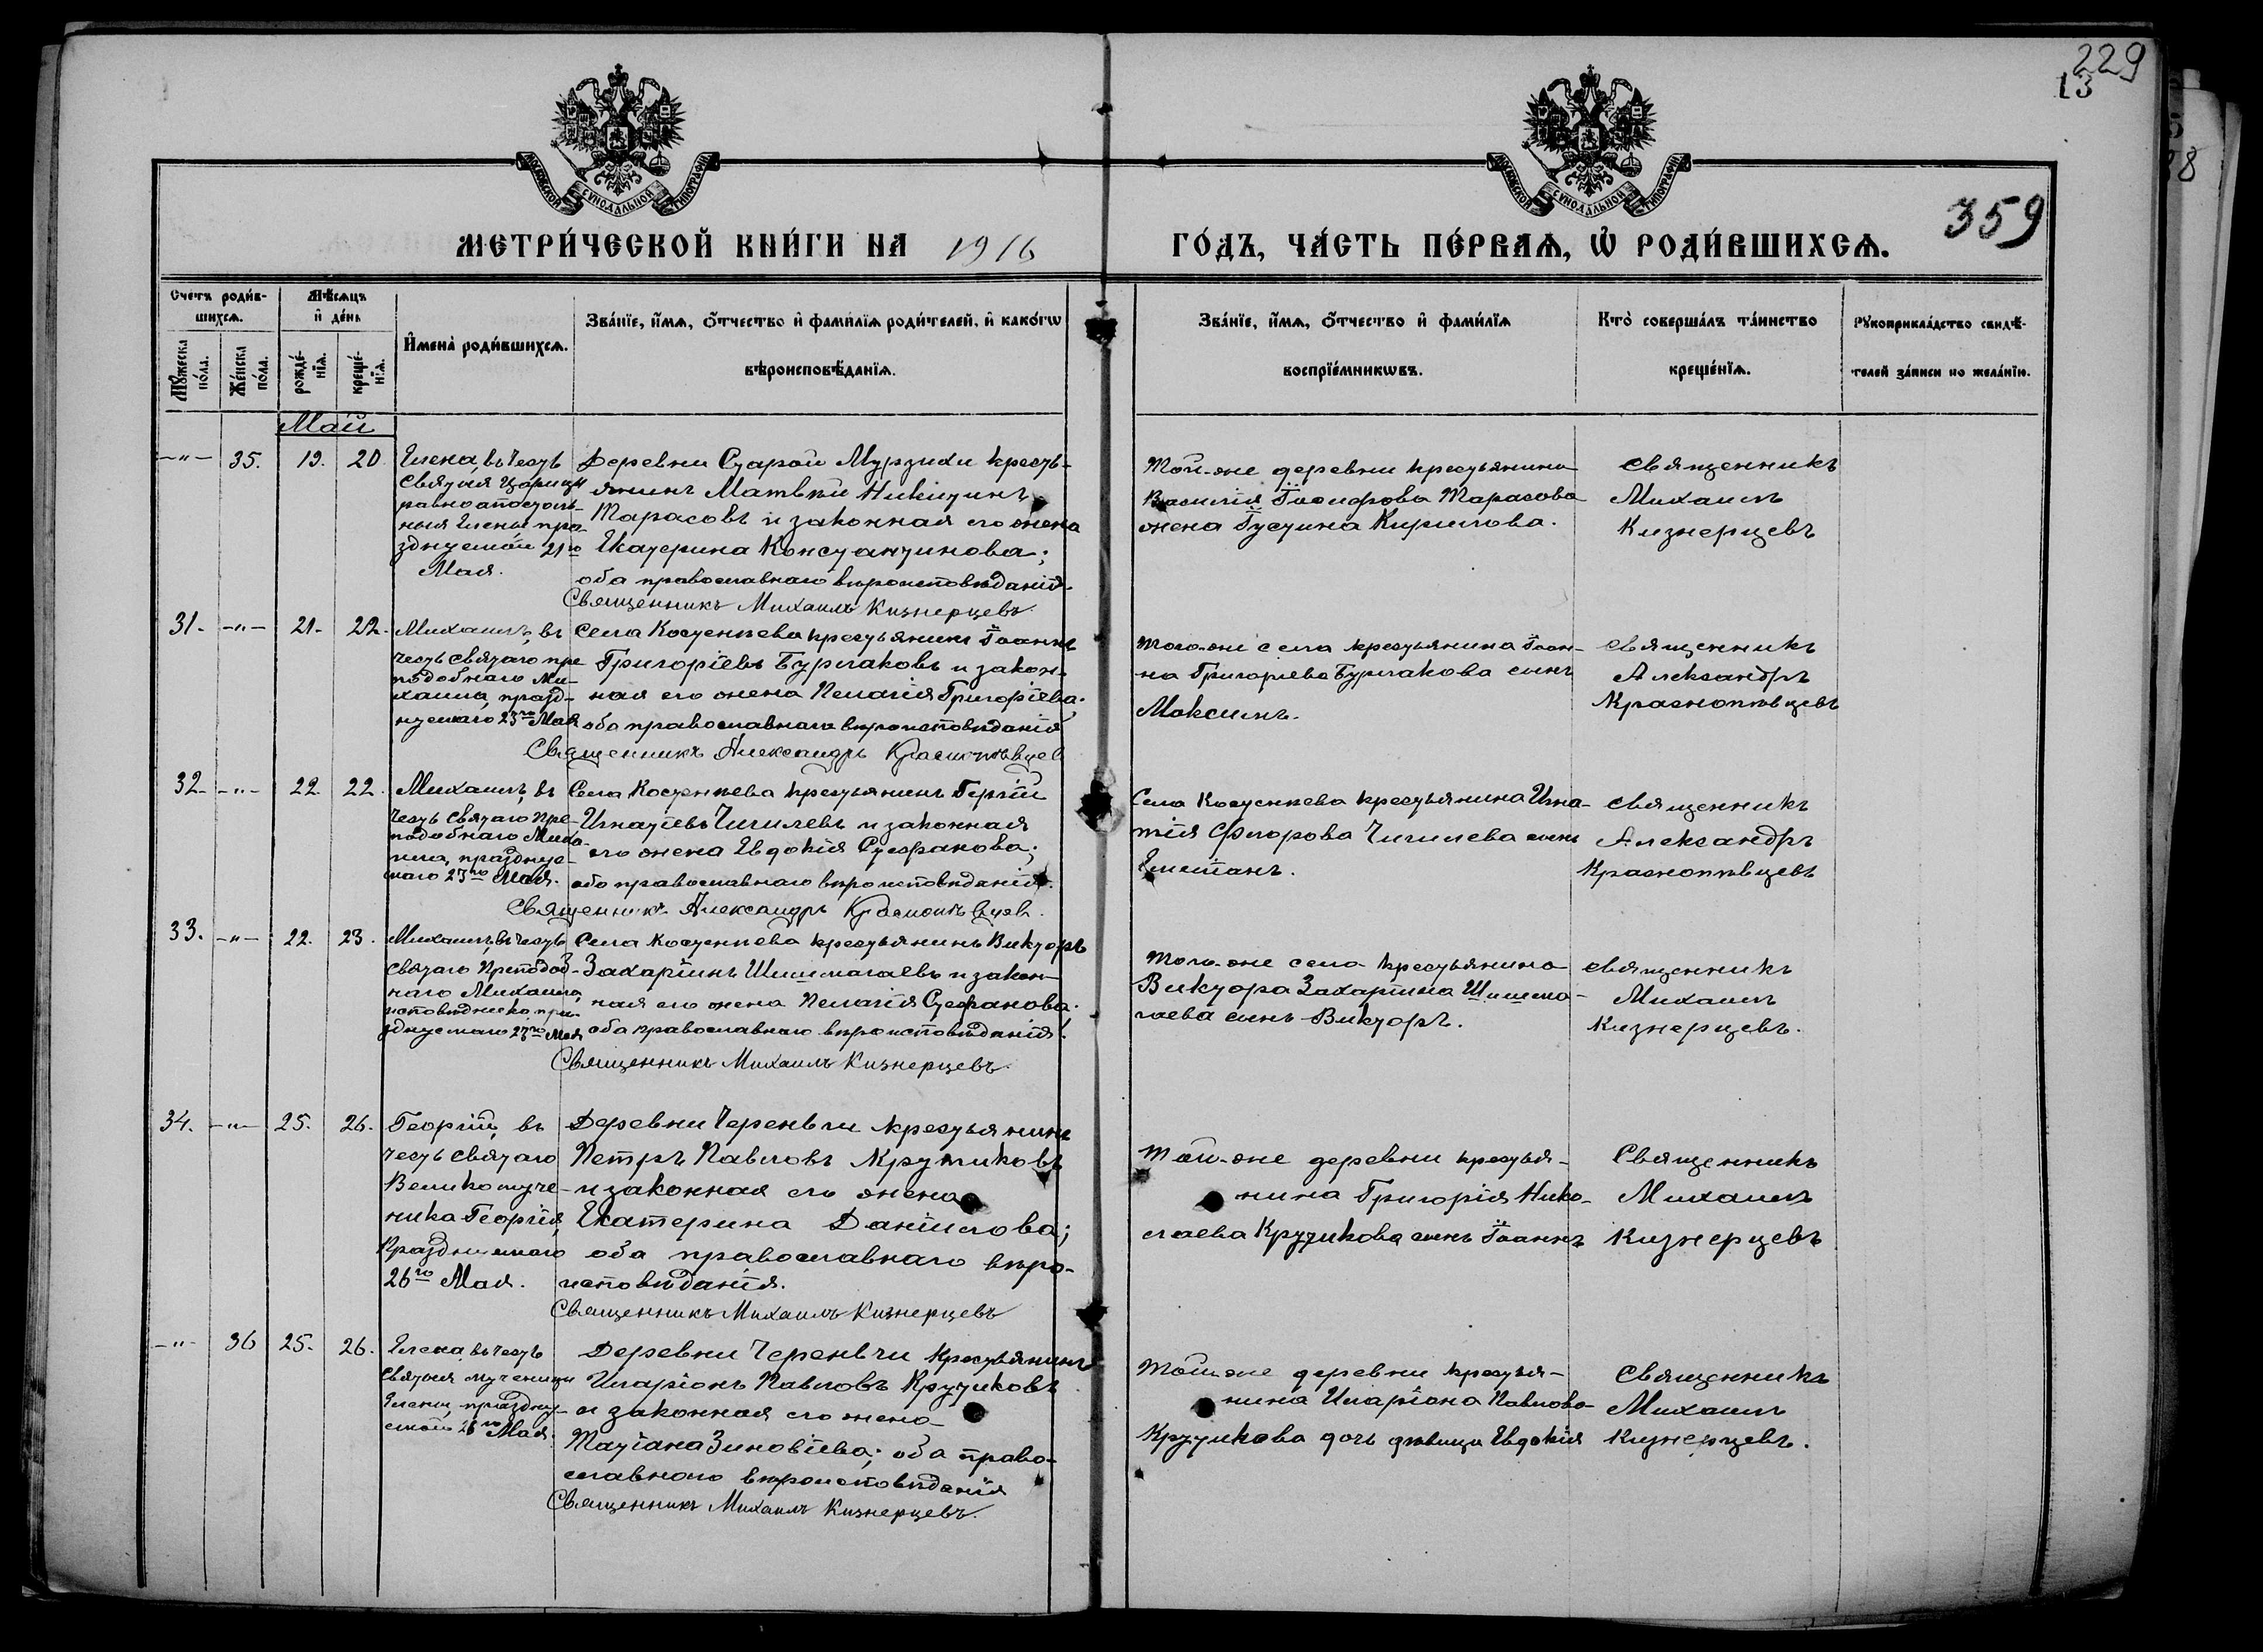 229
13
359
МОСКОВСКОЙ СѴНОДАЛЬНОЙ ТИПОГРАФІИ
МОСКОВСКОЙ СѴНОДАЛЬНОЙ ТИПОГРАФІИ
МЕТРИ́ЧЕСКОЙ КНИ́ГИ НА 1916 ГО́ДЪ, ЧА́СТЬ ПЕ́РВАѦ, Ѡ҆ РОДИ́ВШИХСѦ.
Счетъ роди́в-
шихсѧ.
Мѣ́сѧцъ
и҆ де́нь
Мꙋ́жеска
по́ла.
Же́нска
по́ла.
рожде́-
нїѧ.
креще́-
нїѧ.
И҆мена̀ роди́вшихсѧ.
Зва́нїе, и҆́мѧ, ѻ҆́тчество и҆ фами́лїѧ роди́телей, и҆ како́гѡ
вѣроисповѣ́данїѧ.
Зва́нїе, и҆́мѧ, ѻ҆́тчество и҆ фами́лїѧ
воспрїе́мникѡвъ.
Кто̀ соверша́лъ та́инство
креще́нїѧ.
Рꙋкоприкла́дство свидѣ́-
телей за́писи по жела́нїю.
Май
-"- 35. 19. 20
Елена, въ честь
святыя Царицы
равноапостоль-
ныя Елены, пра-
зднуемой 21го
Мая.
Деревни Старой Мурзихи кресть-
янинъ Матвѣй Никитинъ
Тарасовъ и законная его жена
Екатерина Константинова;
оба православнаго вѣроисповѣданія.
Священникъ Михаилъ Кизнерцевъ.
Той-же деревни крестьянина
Василія Іосифова Тарасова
жена Іустина Кирилова.
Священникъ
Михаилъ
Кизнерцевъ
31. -"- 21. 22.
Михаилъ, въ
честь святаго пре
подобнаго Ми-
хаила, празд-
нуемаго 23го Мая
Села Костенѣева крестьянинъ Іоаннъ
Григоріевъ Бурлаковъ и закон-
ная его жена Пелагія Григоріева;
оба православнаго вѣроисповѣданія
Священникъ Александръ Краснопѣвцев
Того-же села крестьянина Іоан-
на Григоріева Бурлакова сынъ
Максимъ.
Священникъ
Александръ
Краснопѣвцевъ
32. -"- 22. 22.
Михаилъ, въ
честь святаго Пре-
подобнаго Миха-
ила, праздную-
маго 23го Мая.
Села Костенѣева крестьянинъ Георгій
Игнатіевъ Чигилевъ и законная
его жена Евдокія Стефанова;
оба православнаго вѣроисповѣданія.
Священникъ Александръ Краснопѣвцев.
Села Костенѣева крестьянина Игна-
тія Флорова Чигилева сынъ
Емеліанъ.
Священникъ
Александръ
Краснопѣвцевъ
33. -"- 22. 23.
Михаилъ, въ честь
святаго Преподоб-
наго Михаила,
исповѣдника, пра-
зднуемаго 23го Мая
Села Костенѣева крестьянинъ Викторъ
Захаріинъ Шишмагаевъ и закон-
ная его жена Пелагія Стефанова.
оба православнаго вѣроисповѣданія.
Священникъ Михаилъ Кизнерцевъ.
Того-же села крестьянина
Виктора Захаріина Шишма-
гаева сынъ Викторъ.
Священникъ
Михаилъ
Кизнерцевъ.
34. -"- 25. 26.
Георгій, въ
честь святаго
Великомуче-
ника Георгія,
Празднуемаго
26го Мая.
Деревни Черенѣги крестьянинъ
Петръ Павловъ Крутиковъ
и законная его жена
Екатерина Даніилова;
оба православнаго вѣро-
исповѣданія.
Священникъ Михаилъ Кизнерцевъ
Той-же деревни крестья-
нина Григорія Нико-
лаева Крутикова сынъ Іоаннъ
Священникъ
Михаилъ
Кизнерцевъ
-"- 36 25. 26.
Елена, въ честь
святыя мученицы
Елены, праздну-
емой 26го Мая.
Деревни Черенѣги Крестьянинъ
Иларіонъ Павловъ Крутиковъ
и законная его жена
Татіана Зиновіева; оба право-
славнаго вѣроисповѣданія
Священникъ Михаилъ Кизнерцевъ.
Той-же деревни крестья-
нина Иларіона Павлова
Крутикова дочь дѣвица Евдокія
Священникъ
Михаилъ
Кизнерцевъ.